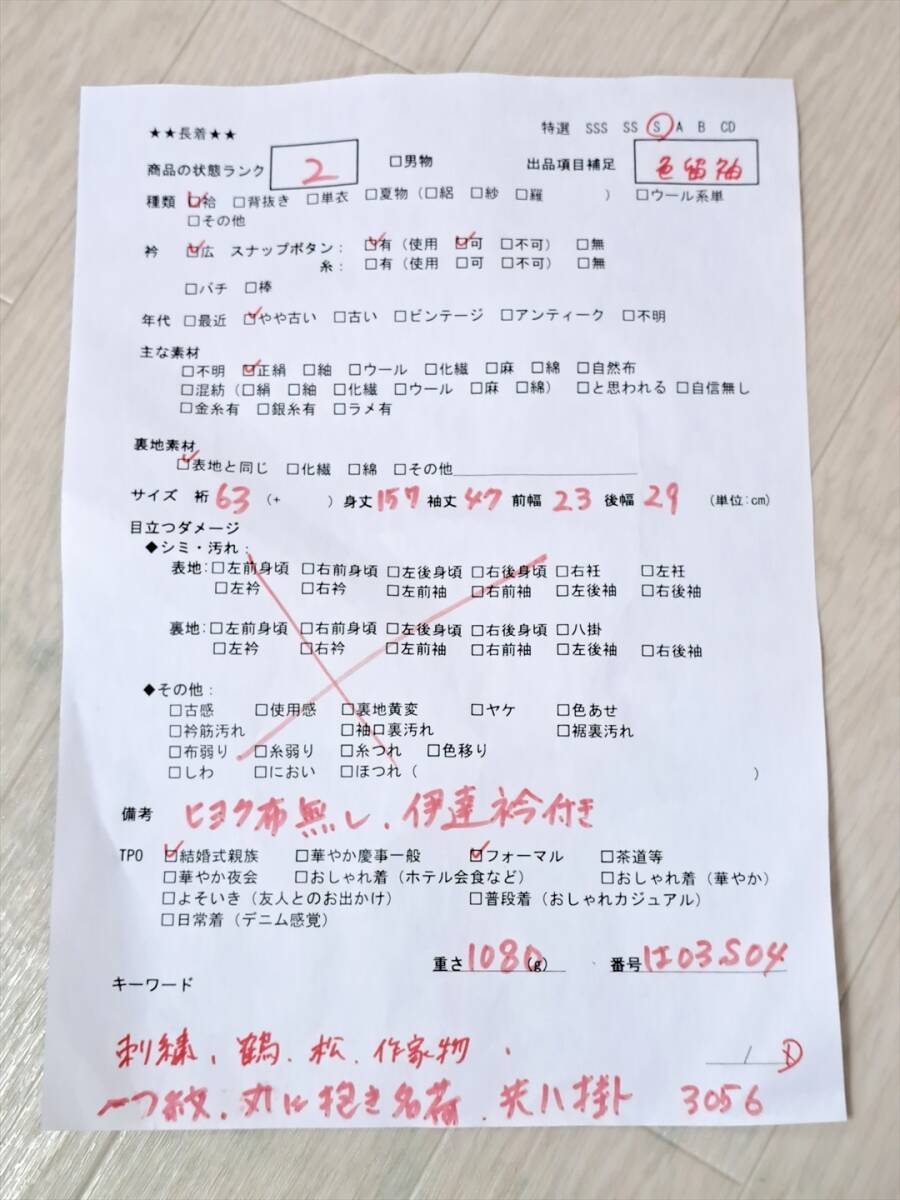 ★★長着★★ 特選 SSS SS S A B CD
商品の状態ランク 2 □男物 出品項目補足 色留袖
種類 ☑袷 □背抜き □単衣 □夏物(□絽 □紗 □羅 ) □ウール系単
□その他
衿 ☑広 スナップボタン: ☑有(使用 ☑可 □不可) □無
糸:□有(使用 □可 □不可) □無
□バチ □棒
年代 □最近 ☑やや古い □古い □ビンテージ □アンティーク □不明
主な素材
□不明 ☑正絹 □紬 □ウール □化繊 □麻 □綿 □自然布
□混紡(□絹 □紬 □化繊 □ウール □麻 □綿) □と思われる □自信無し
□金糸有 □銀糸有 □ラメ有
裏地素材
☑表地と同じ □化繊 □綿 □その他
サイズ 裄 63 (+ ) 身丈 157 袖丈 47 前幅 23 後幅 29 (単位:cm)
目立つダメージ
◆シミ・汚れ:
表地:□左前身頃 □右前身頃 □左後身頃 □右後身頃 □右衽 □左衽
□左衿 □右衿 □左前袖 □右前袖 □左後袖 □右後袖
裏地:□左前身頃 □右前身頃 □左後身頃 □右後身頃 □八掛
□左衿 □右衿 □左前袖 □右前袖 □左後袖 □右後袖
◆その他:
□古感 □使用感 □裏地黄変 □ヤケ □色あせ
□衿筋汚れ □袖口裏汚れ □裾裏汚れ
□布弱り □糸弱り □糸つれ □色移り
□しわ □におい □ほつれ( )
備考 ヒヨク布無し、伊達衿付き
TPO ☑結婚式親族 □華やか慶事一般 ☑フォーマル □茶道等
□華やか夜会 □おしゃれ着(ホテル会食など) □おしゃれ着(華やか)
□よそいき(友人とのお出かけ) □普段着(おしゃれカジュアル)
□日常着(デニム感覚)
重さ 1080 (g) 番号 は03S04
キーワード
刺繍、鶴、松、作家物、
一つ紋、丸に抱き名荷、共八掛 3056